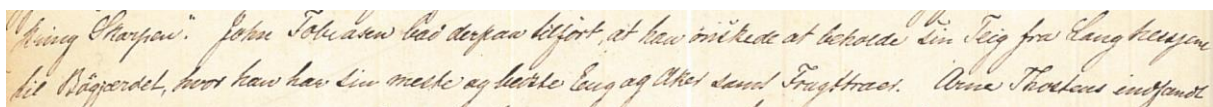 kring Skarpen". John Tobiasen bad derpaa tilført, at han önskede at beholde sin Teig fra Langhesjene
til Bögjærdet, hvor han har sin meste og bedste Eng og Aker samt Frugttraer. Arne Thostens indfandt